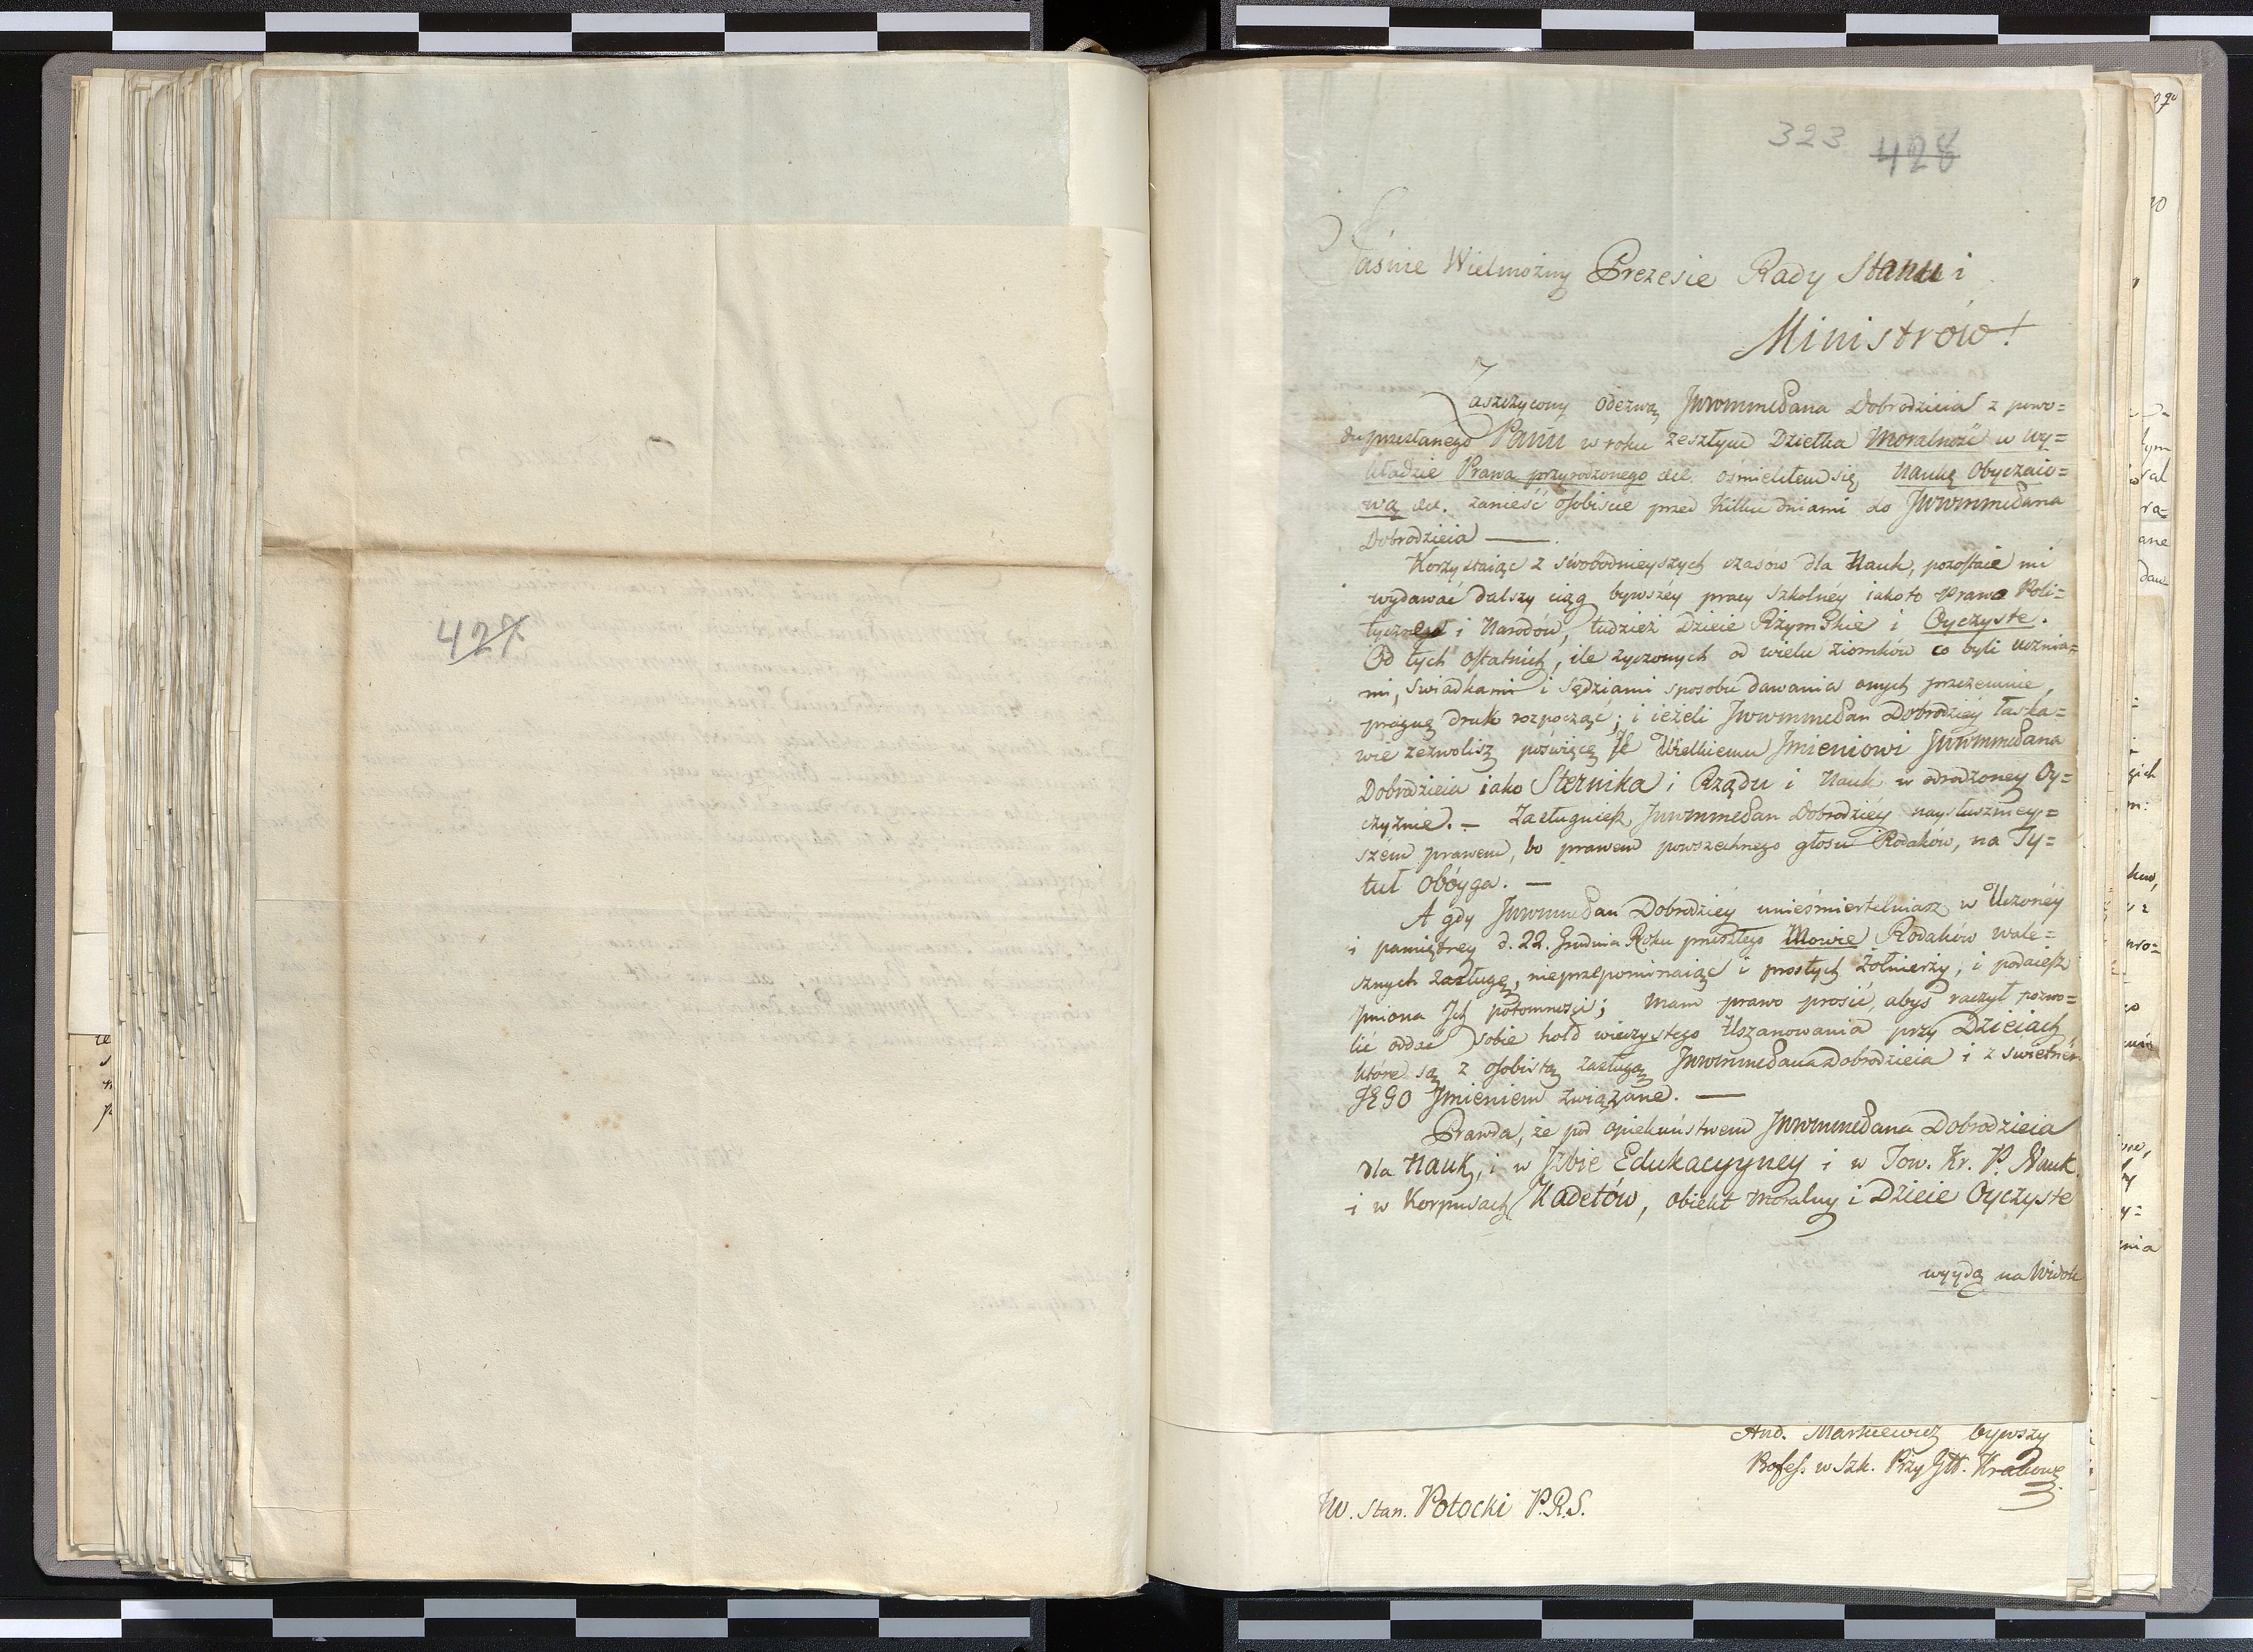 427
323 428
Jaśnie Wielmożny Prezesie Rady Stanu i
Ministrów!
Zaszczycony odezwą JwwmmPana Dobrodzieia z powo=
du przesłanego Panu w roku zeszłym Dziełka Moralność w wy=
kładzie Prawa przyrodzonego &c. ośmieliłem się, Naukę Obyczaio=
wą &c. zanieść osobiście przed kilku dniami do JwwmmPana
Dobrodzieia —
Korzystaiąc z swobodnieyszych czasów dla Nauk, pozostaie mi
wydawać dalszy ciąg bywszéy pracy szkolnéy iako to Prawo Poli=
tyczne i Narodów, tudzież Dzieie Rzymskie i Oyczyste.
Od tych ostatnich, ile życzonych od wielu ziomków co byli ucznia=
mi, świadkami i sędziami sposobu dawania onych przezemnie,
pragnę druk rozpocząć; i ieżeli JwwmmPan Dobrodziéy łaska=
wie zezwolisz poświęcę Je Wielkiemu Jmieniowi JwwmmPana
Dobrodzieia iako Sternika i Rządu i Nauk w odrodzoney Oy=
czyznie. — Zasługuiesz JwwmmPan Dobrodziéy naysłuszniey=
szém prawem, bo prawem powszechnego głosu Rodaków, na Ty=
tuł Obóyga. —
A gdy JwwmmPan Dobrodziéy unieśmiertelniasz w Uczonéy
i pamiętney d. 22. Grudnia Roku przeszłego Mowie Rodaków wale=
cznych zasługę, nieprzepominaiąc i prostych Żołnierzy; i podaiesz
Jmiona Jch potomności; mam prawo prosić, abyś raczył pozwo=
lić oddać sobie hołd wieczystego Uszanowania przy Dzieiach
które są z osobistą zasługą JwwmmPana Dobrodzieia i z świetném
JEGO Jmieniem związane. —
Prawda, że pod opiekuństwem JwwmmPana Dobrodzieia
dla Nauk, i w Jzbie Edukacyyney i w Tow. Kr. P. Nauk.
i w Korpusach Kadetów, obiekt moralny i Dzieie Oyczyste
wyydą na Widok
And. Markiewicz bywszy
Profess. w Szk. Przy Gł. Krakowę
JW. Stan. Potocki P.R.S.